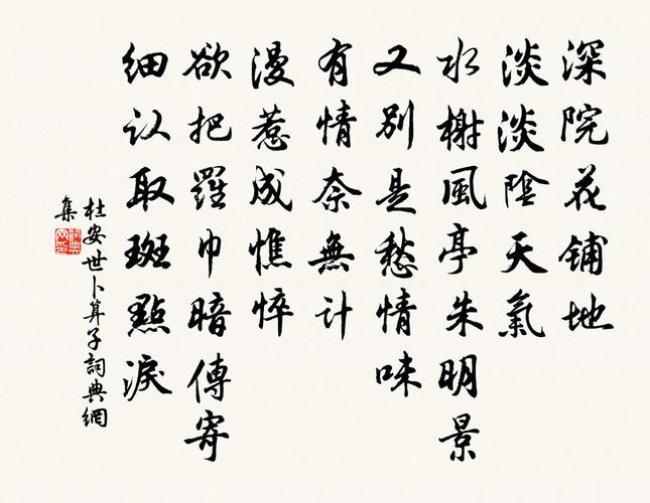 深院花铺地
淡淡陰天氣
水榭風亭朱明景
又別是愁情味
有情奈無计
漫惹成憔悴
欲把羅巾暗傳寄
细认取斑點淚
杜安世卜算子詞典網
集